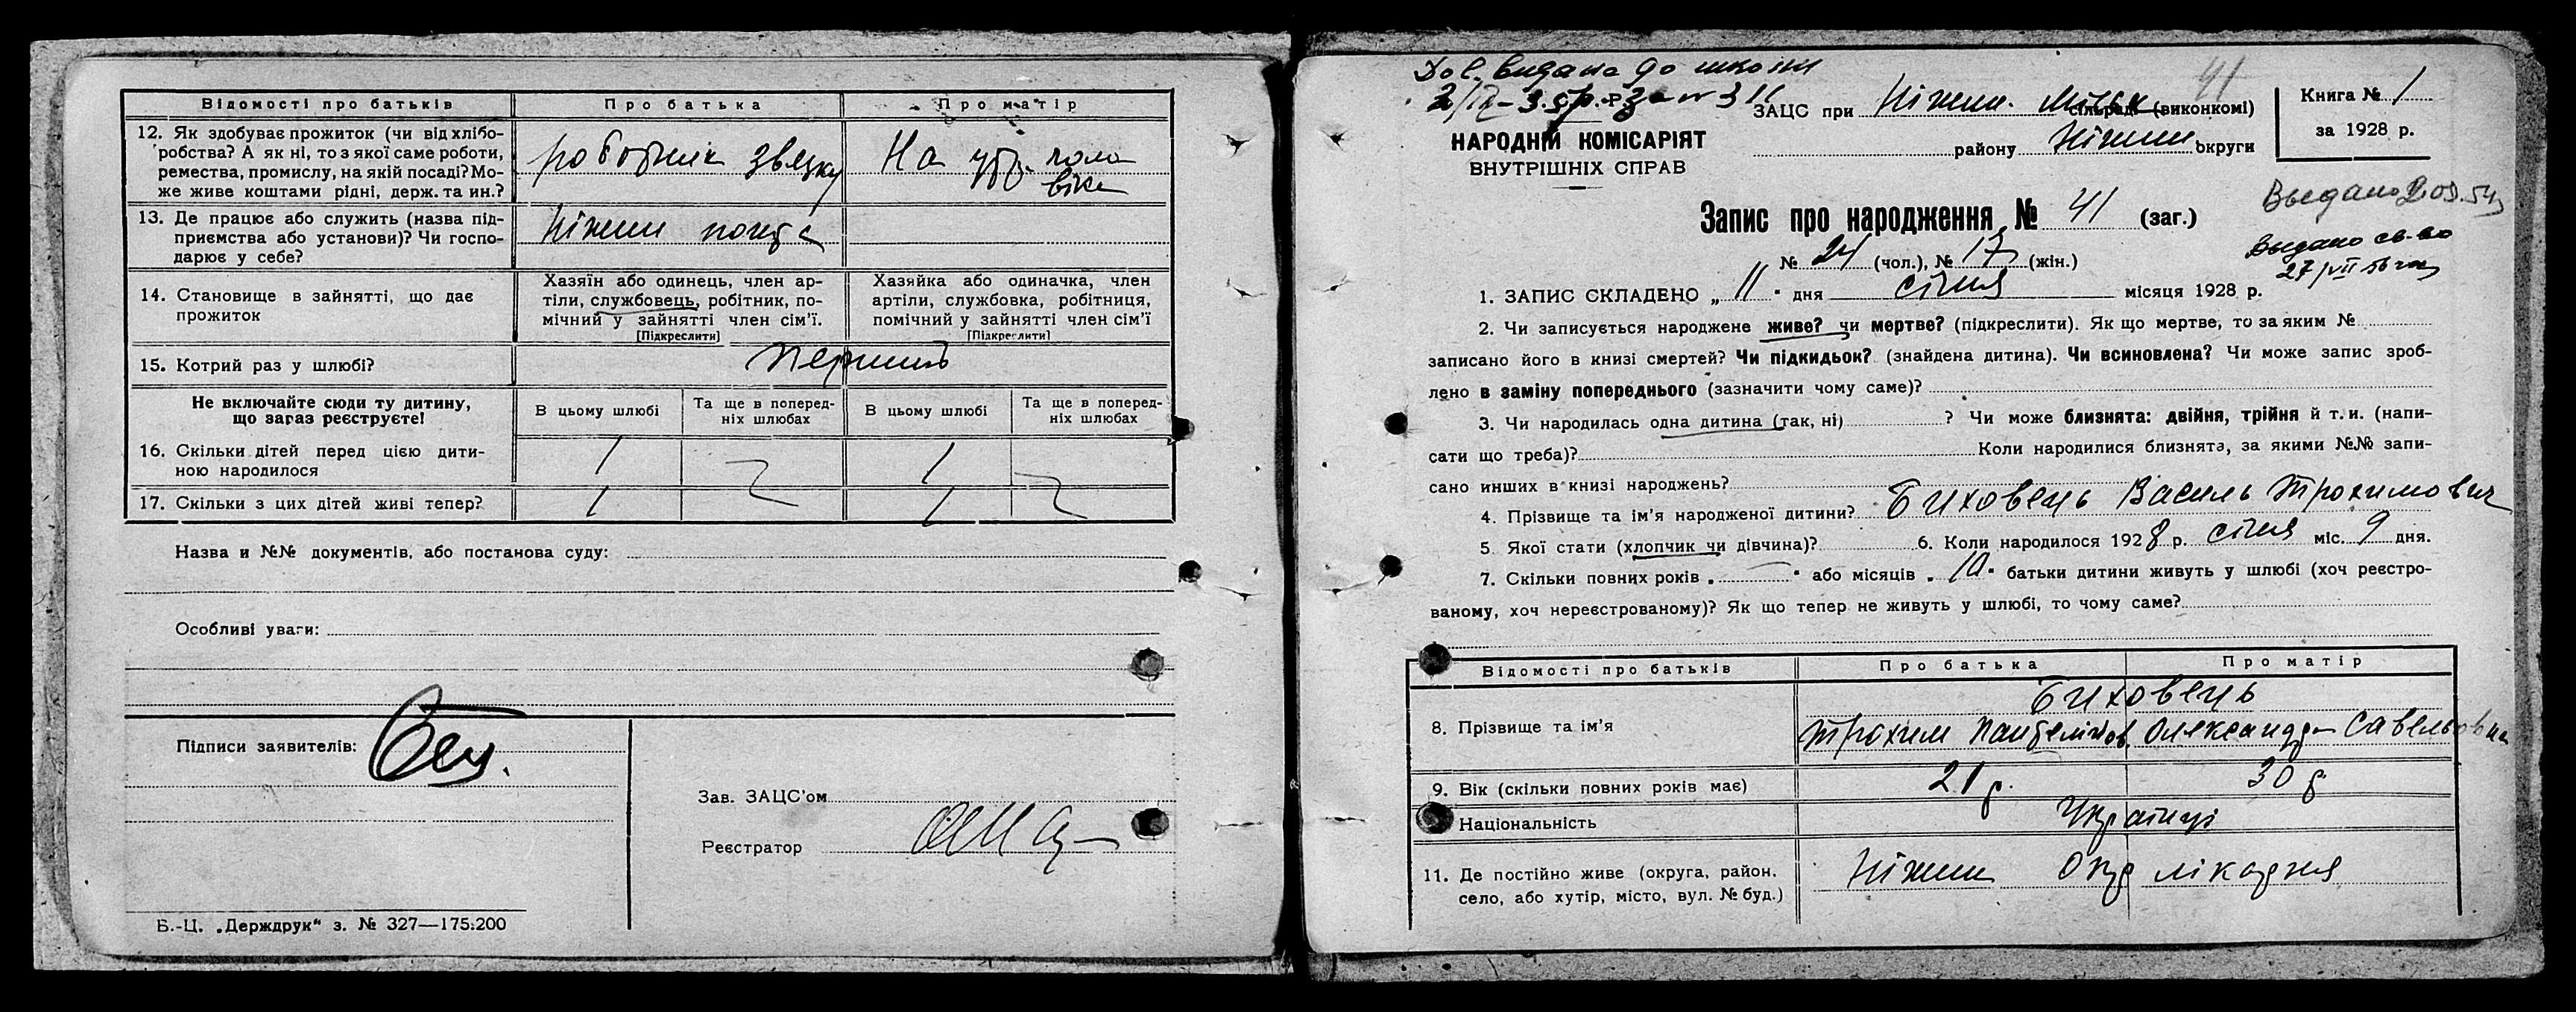 Відомості про батьків Про батька Про матір
12. Як здобуває прожиток (чи від хлібо-
робства? А як ні, то з якої саме роботи,
ремества, промислу, на якій посаді? Мо-
же живе коштами рідні, держ. та ин.?
робітник звязку На утр. чоло
віка
13. Де працює або служить (назва під-
приємства або установи)? Чи госпо-
дарює у себе?
Ніжин пошта
14. Становище в зайнятті, що дає
прожиток
Хазяїн або одинець, член ар-
тіли, службовець, робітник, по-
мічний у зайнятті член сім'ї.
[Підкреслити]
Хазяйка або одиначка, член
артіли, службовка, робітниця,
помічний у зайнятті член сім'ї
[Підкреслити]
15. Котрий раз у шлюбі? Перший
Не включайте сюди ту дитину,
що зараз реєструєте!
В цьому шлюбі Та ще в поперед-
ніх шлюбах В цьому шлюбі Та ще в поперед-
ніх шлюбах
16. Скільки дітей перед цією дити-
ною народилося 1 1
17. Скільки з цих дітей живі тепер? 1 1
Назва и №№ документів, або постанова суду:
Особливі уваги:
Підписи заявителів:
Зав. ЗАЦС'ом
Реєстратор
Б.-Ц. „Держдрук“ з. № 327—175:200
видана до школи
НАРОДНІЙ КОМІСАРІЯТ
ВНУТРІШНІХ СПРАВ
ЗАЦС при Ніжин. Міськ сільраді (виконкомі)
району Ніжин округи
41
Книга № 1
за 1928 р.
Запис про народження № 41 (заг.)
№ 24 (чол.), № 17 (жін.)
Выдано св-во
27/VII 56
1. ЗАПИС СКЛАДЕНО „11“ дня січня місяця 1928 р.
2. Чи записується народжене живе? чи мертве? (підкреслити). Як що мертве, то за яким №
записано його в книзі смертей? Чи підкидьок? (знайдена дитина). Чи всиновлена? Чи може запис зроб-
лено в заміну попереднього (зазначити чому саме)?
3. Чи народилась одна дитина (так, ні) ? Чи може близнята: двійня, трійня й т. и. (напи-
сати що треба)? Коли народилися близнята, за якими №№ запи-
сано инших в книзі народжень?
4. Прізвище та ім'я народженої дитини? Биховець Василь Трохимович
5. Якої стати (хлопчик чи дівчина)? 6. Коли народилося 1928 р. січня міс. 9 дня.
7. Скільки повних років „ “ або місяців „10“ батьки дитини живуть у шлюбі (хоч реєстро-
ваному, хоч нереєстрованому)? Як що тепер не живуть у шлюбі, то чому саме?
Відомості про батьків Про батька Про матір
Биховець
8. Прізвище та ім'я Трохим Пантелімов. Олександра Савельовна
9. Вік (скільки повних років має) 21 р. 30 р
Національність Українці
11. Де постійно живе (округа, район,
село, або хутір, місто, вул. № буд.)
Ніжин Окр лікарня